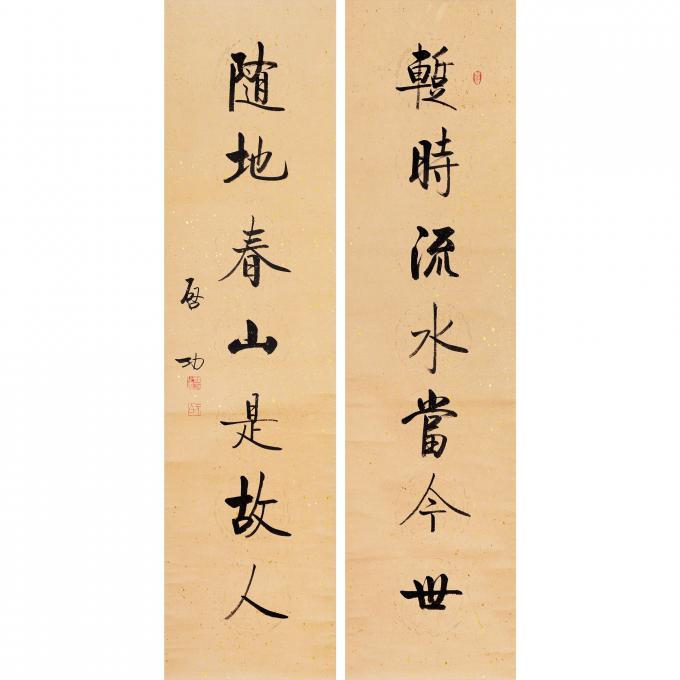 暫時流水當今世
随地春山是故人
启功